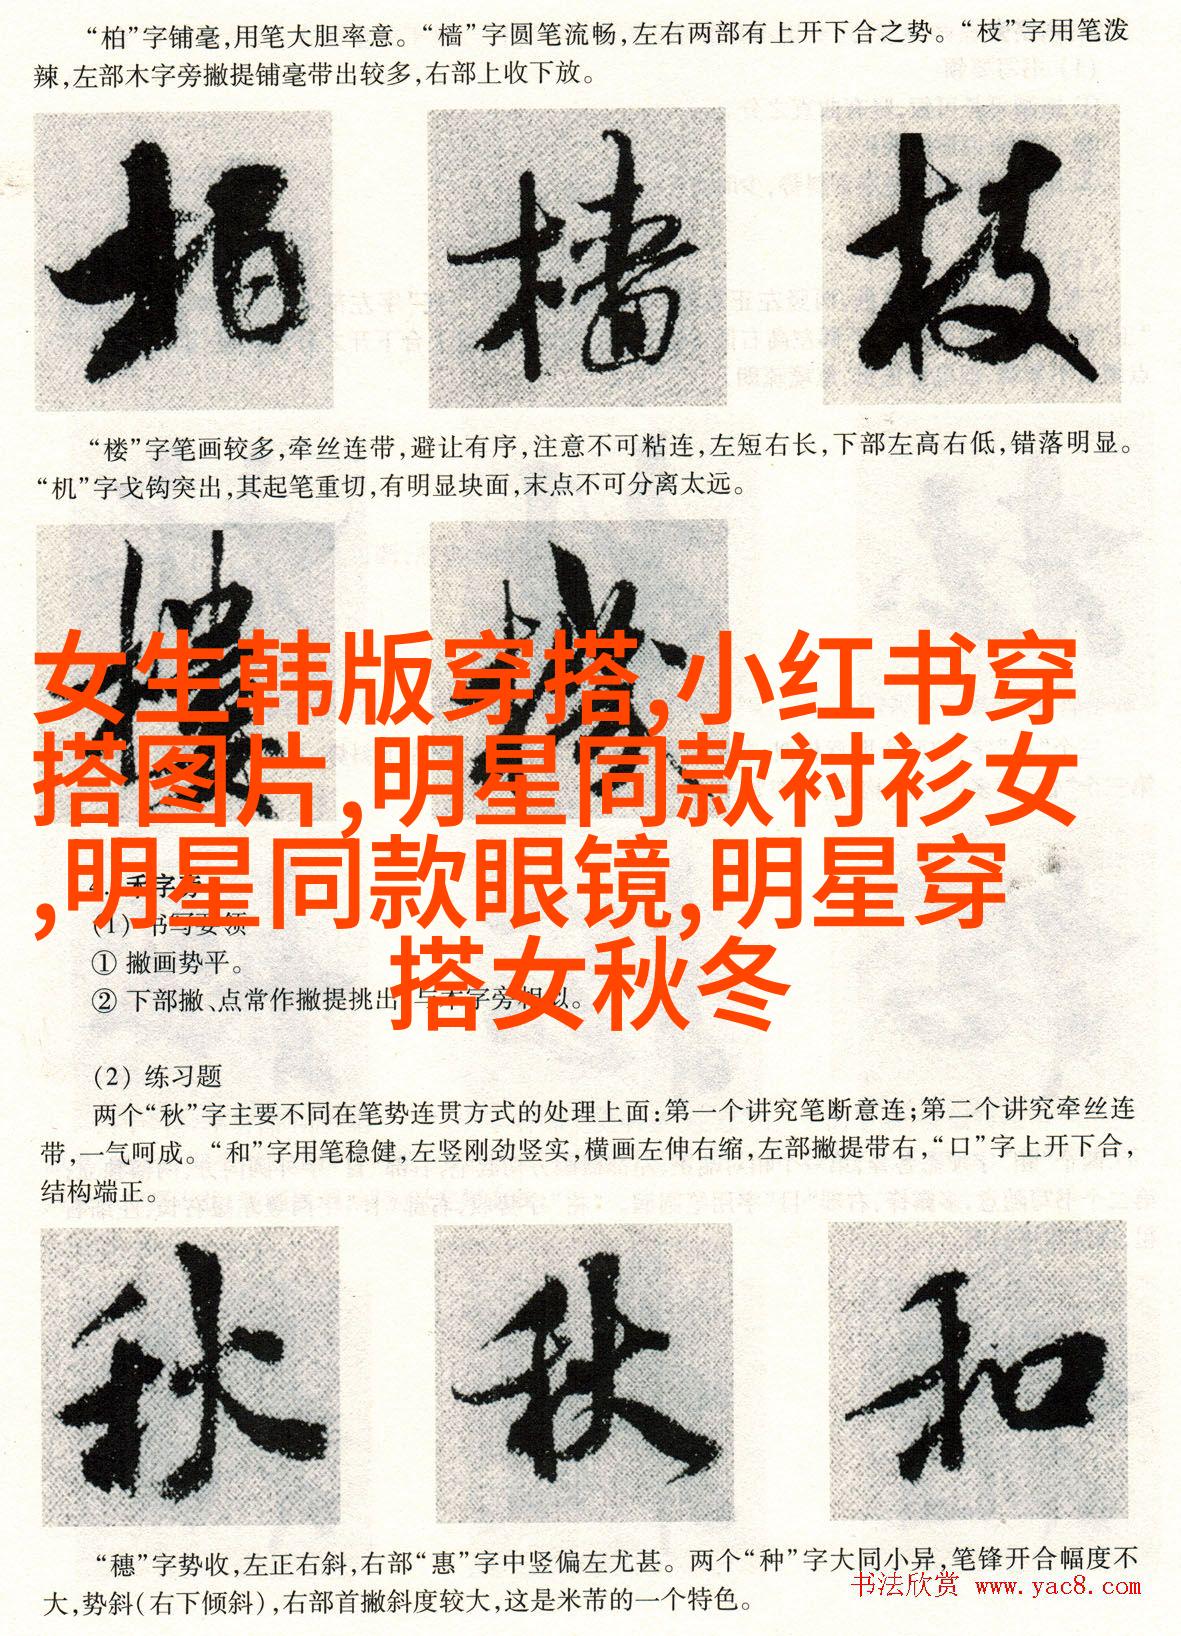 “柏”字铺毫,用笔大胆率意。“樯”字圆笔流畅,左右两部有上开下合之势。“枝”字用笔泼
辣,左部木字旁撇提铺毫带出较多,右部上收下放。
柏 樯 枝
“楼”字笔画较多,牵丝连带,避让有序,注意不可粘连,左短右长,下部左高右低,错落明显。
“机”字戈钩突出,其起笔重切,有明显块面,末点不可分离太远。
女生韩版穿搭,小红书穿
搭图片,明星同款衬衫女
,明星同款眼镜,明星穿
搭女秋冬
(1) 书写要领
① 撇画势平。
② 下部撇、点常作撇提挑出
(2) 练习题
两个“秋”字主要不同在笔势连贯方式的处理上面:第一个讲究笔断意连;第二个讲究牵丝连
带,一气呵成。“和”字用笔稳健,左竖刚劲竖实,横画左伸右缩,左部撇提带右,“口”字上开下合,
结构端正。
秋 秋 和
“穗”字势收,左正右斜,右部“惠”字中竖偏左尤甚。两个“种”字大同小异,笔锋开合幅度不
大,势斜(右下倾斜),右部首撇斜度较大,这是米芾的一个特色。
书法欣赏 www.yac8.com